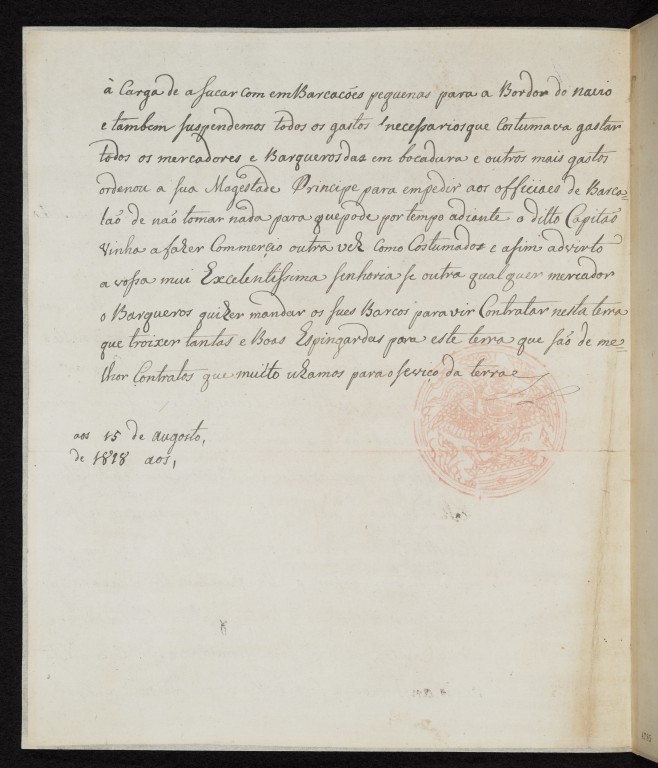 à Carga de asucar com em Barcacões pequenas para a Bordor do navio
e tambem suspendemos todos os gastos necessarios que Costumava gastar
todos os mercadores e Barqueros das em bocadura e outros mais gastos
ordenou a sua Magestade Principe para empedir aos officiaes de Barca=
laõ de naõ tomar nada para que pode por tempo adiante o ditto Capitaõ
vinha a fazer Commerçio outra vez Como Costumados e asim advirto
a vossa mui Excelentissima senhoria se outra qualquer mercador
o Barqueros quizer mandar os sues Barcos para vir Contratar nesta terra
que troixer tantas e Boas Espingardas para este terra que saõ de me=
lhor Contratos que muito uzamos para o seviço da terra
aos 15 de augosto,
de 1818 aos,